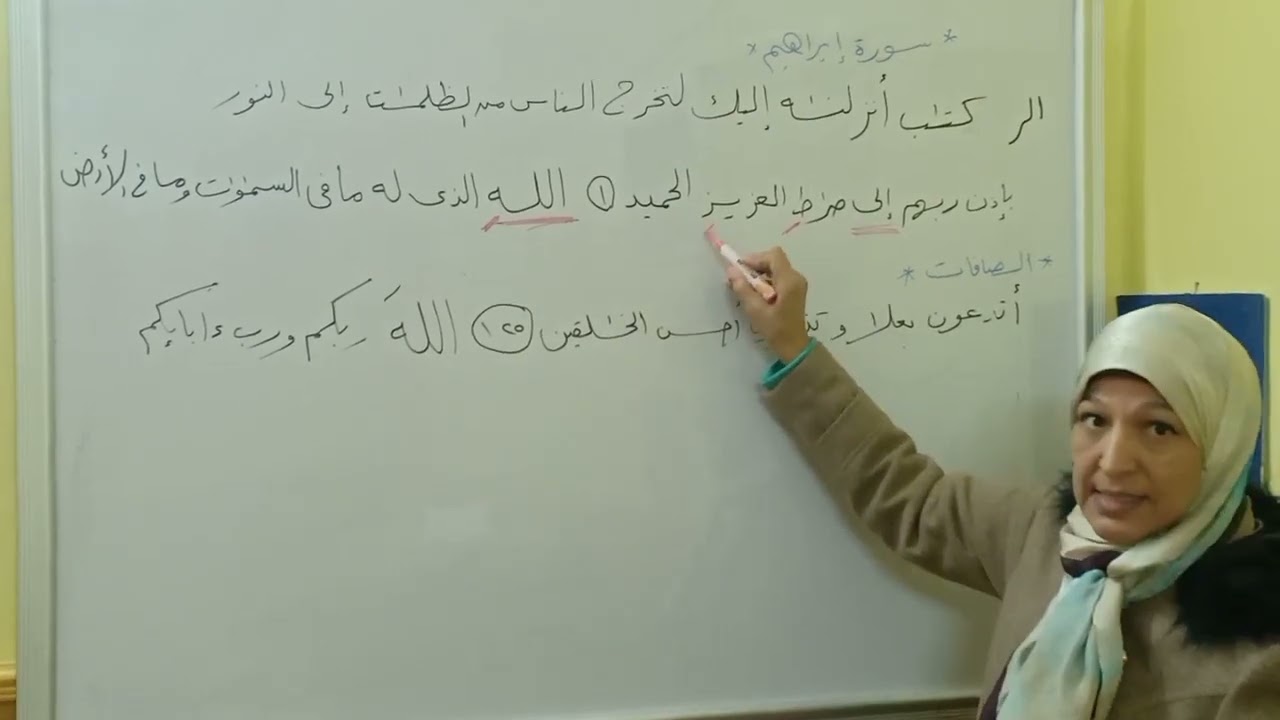 * سورة إبراهيم *
الر كتٰب أنزلنٰه إليك لتخرج الناس من الظلمٰت إلى النور
بإذن ربهم إلى صرٰط العزيز الحميد ١ الله الذى له ما فى السمٰوٰت وما فى الأرض
* الصافات *
أتدعون بعلا و أحسن الخٰلقين ١٢٥ اللهَ ربكم ورب ءابايكم